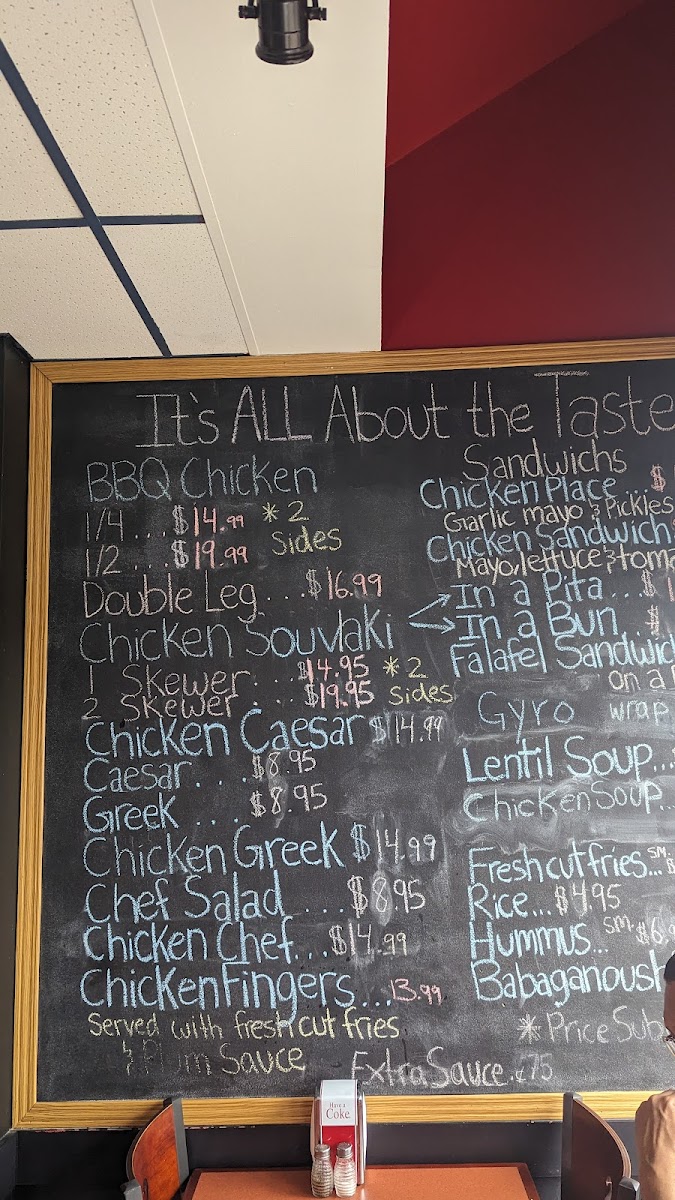 It's ALL About the Taste
BBQ Chicken
1/4 ... $14.99 * 2
1/2 ... $19.99 Sides
Double Leg.... $16.99
Chicken Souvlaki
1 Skewer... $14.95 * 2
2 Skewer... $19.95 sides
Chicken Caesar $14.99
Caesar.... $8.95
Greek .... $8.95
Chicken Greek $14.99
Chef Salad .... $8.95
Chicken Chef.... $14.99
Chicken Fingers... 13.99
Served with fresh cut fries
& Plum Sauce
Extra Sauce. ¢75
Sandwichs
Chicken Place... $
Garlic mayo & Pickles
Chicken Sandwich
Mayo, lettuce & toma
In a Pita ... $1
In a Bun
Falafel Sandwic
on a
Gyro wrap
Lentil Soup...
Chicken Soup..
Fresh cut fries... SM. $
Rice... $4.95
Hummus... sm. $6.9
Babaganoush
* Price Sub
Have a
Coke